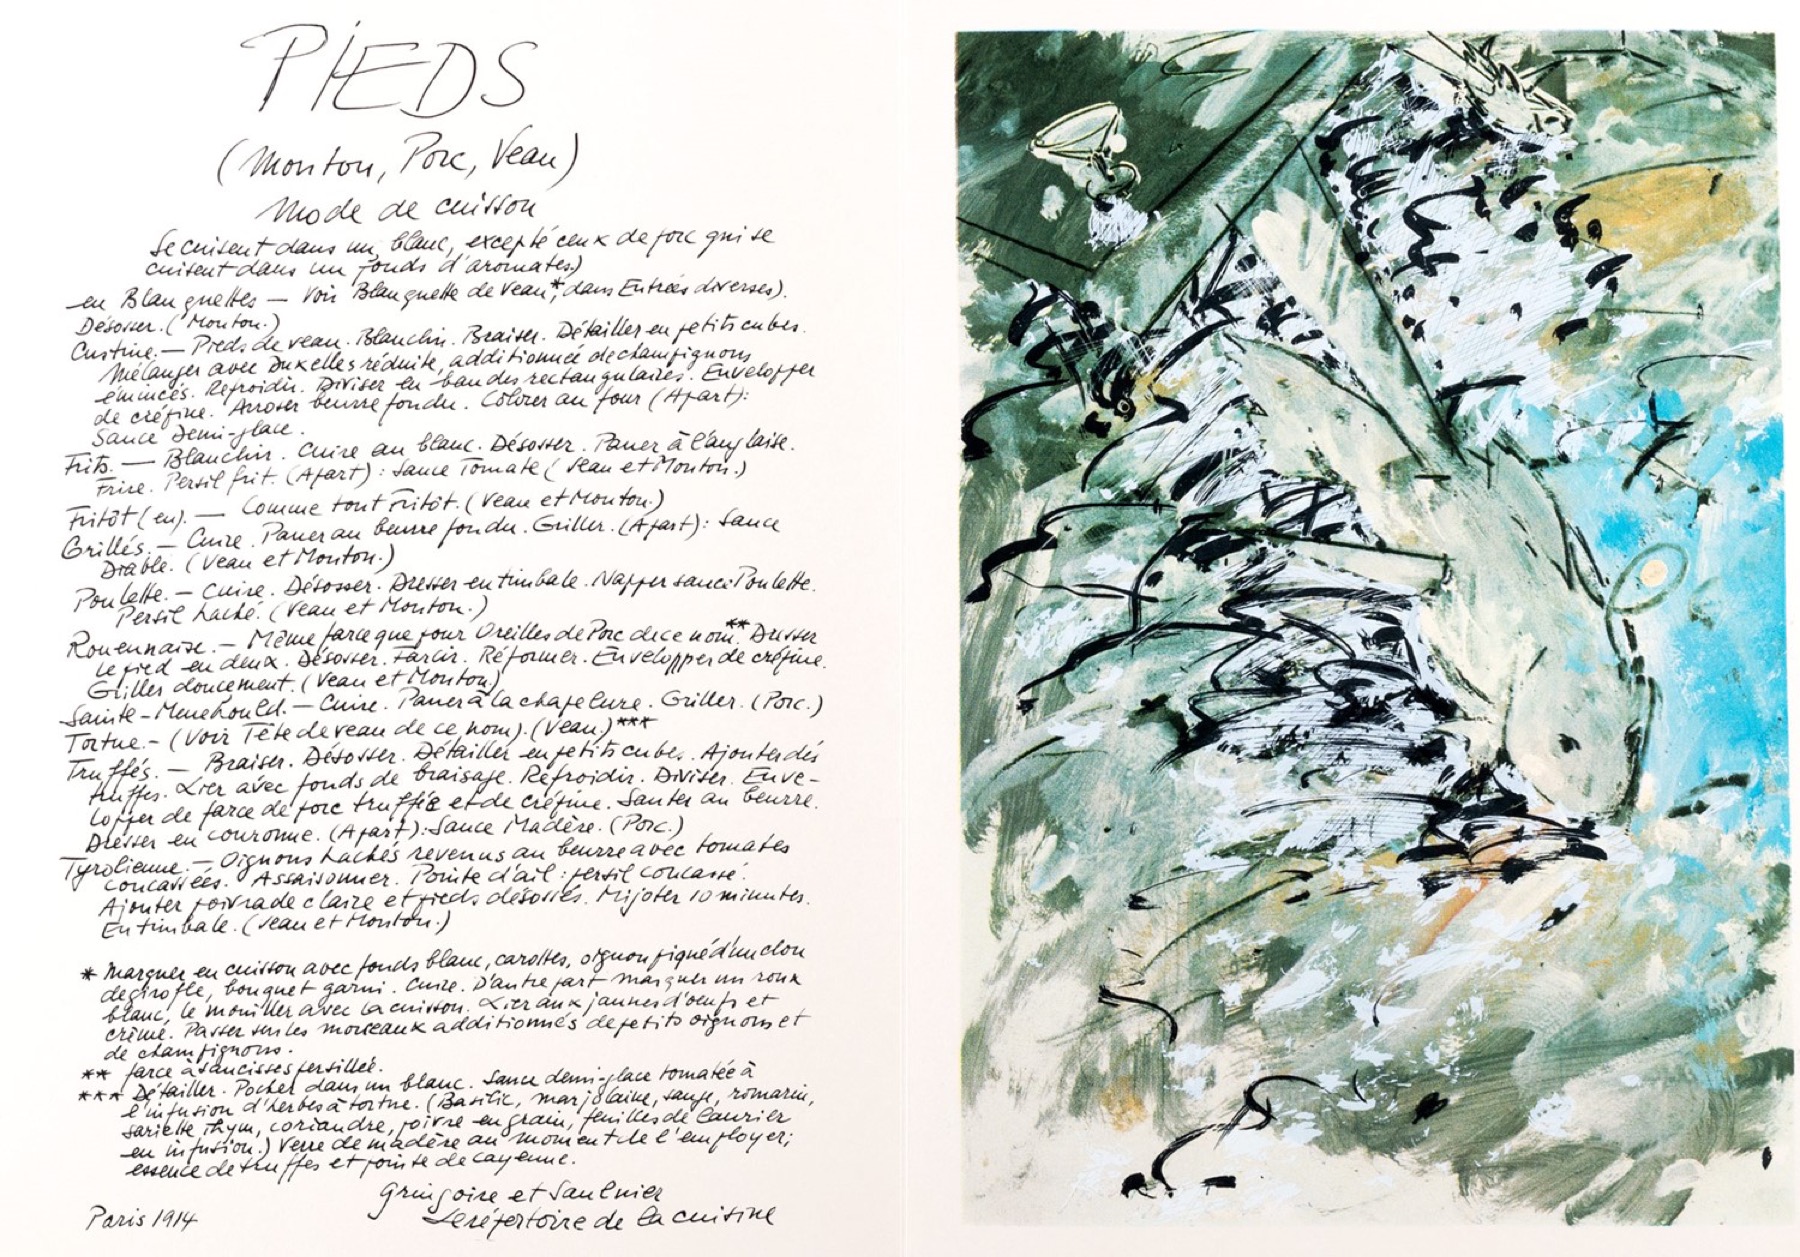 PIEDS
(Mouton, Porc, Veau)
Mode de cuisson
Se cuisent dans un blanc, excepté ceux de porc qui se
cuisent dans un fonds d'aromates)
en Blanquettes — Voir Blanquette de Veau*, dans Entrées diverses).
Désosser. (Mouton.)
Custine. — Pieds de veau. Blanchir. Braiser. Détailler en petits cubes.
Mélanger avec Duxelles réduite, additionnée de champignons
émincés. Refroidir. Diviser en bandes rectangulaires. Envelopper
de crépine. Arroser beurre fondu. Colorer au four (Apart):
Sauce Demi-glace.
Frits. — Blanchir. Cuire au blanc. Désosser. Paner à l'anglaise.
Frire. Persil frit. (Apart): Sauce Tomate (Veau et Mouton.)
Fritôt (en). — Comme tout Fritôt. (Veau et Mouton.)
Grillés. — Cuire. Paner au beurre fondu. Griller. (Apart): Sauce
Diable. (Veau et Mouton.)
Poulette. — Cuire. Désosser. Dresser en timbale. Napper sauce Poulette.
Persil haché. (Veau et Mouton.)
Rouennaise. — Même farce que pour Oreilles de Porc de ce nom.** Dresser
le pied en deux. Désosser. Farcir. Réformer. Envelopper de crépine.
Grilles doucement. (Veau et Mouton.)
Sainte-Menehould. — Cuire. Paner à la chapelure. Griller. (Porc.)
Tortue. — (Voir Tête de veau de ce nom). (Veau.)***
Truffés. — Braiser. Désosser. Détailler en petits cubes. Ajouter dés
truffes. Lier avec fonds de braisage. Refroidir. Diviser. Enve-
lopper de farce de porc truffée et de crépine. Sauter au beurre.
Dresser en couronne. (Apart): Sauce Madère. (Porc.)
Tyrolienne. — Oignons hachés revenus au beurre avec tomates
concassées. Assaisonner. Pointe d'ail: persil concassé.
Ajouter poivrade claire et pieds désossés. Mijoter 10 minutes.
En timbale. (Veau et Mouton.)
* Marquer en cuisson avec fonds blanc, carottes, oignon piqué d'un clou
de girofle, bouquet garni. Cuire. D'autre part marquer un roux
blanc, le mouiller avec la cuisson. Lier aux jaunes d'oeufs et
crème. Passer sur les morceaux additionnés de petits oignons et
de champignons.
** farce à saucisses persillée.
*** Détailler. Pocher dans un blanc. Sauce demi-glace tomatée à
l'infusion d'herbes à tortue. (Basilic, marjolaine, sauge, romarin,
sariette thym, coriandre, poivre en grain, feuilles de laurier
en infusion.) Verre de madère au moment de l'employer;
essence de truffes et pointe de cayenne.
Gringoire et Saulnier
Le répertoire de la cuisine
Paris 1914